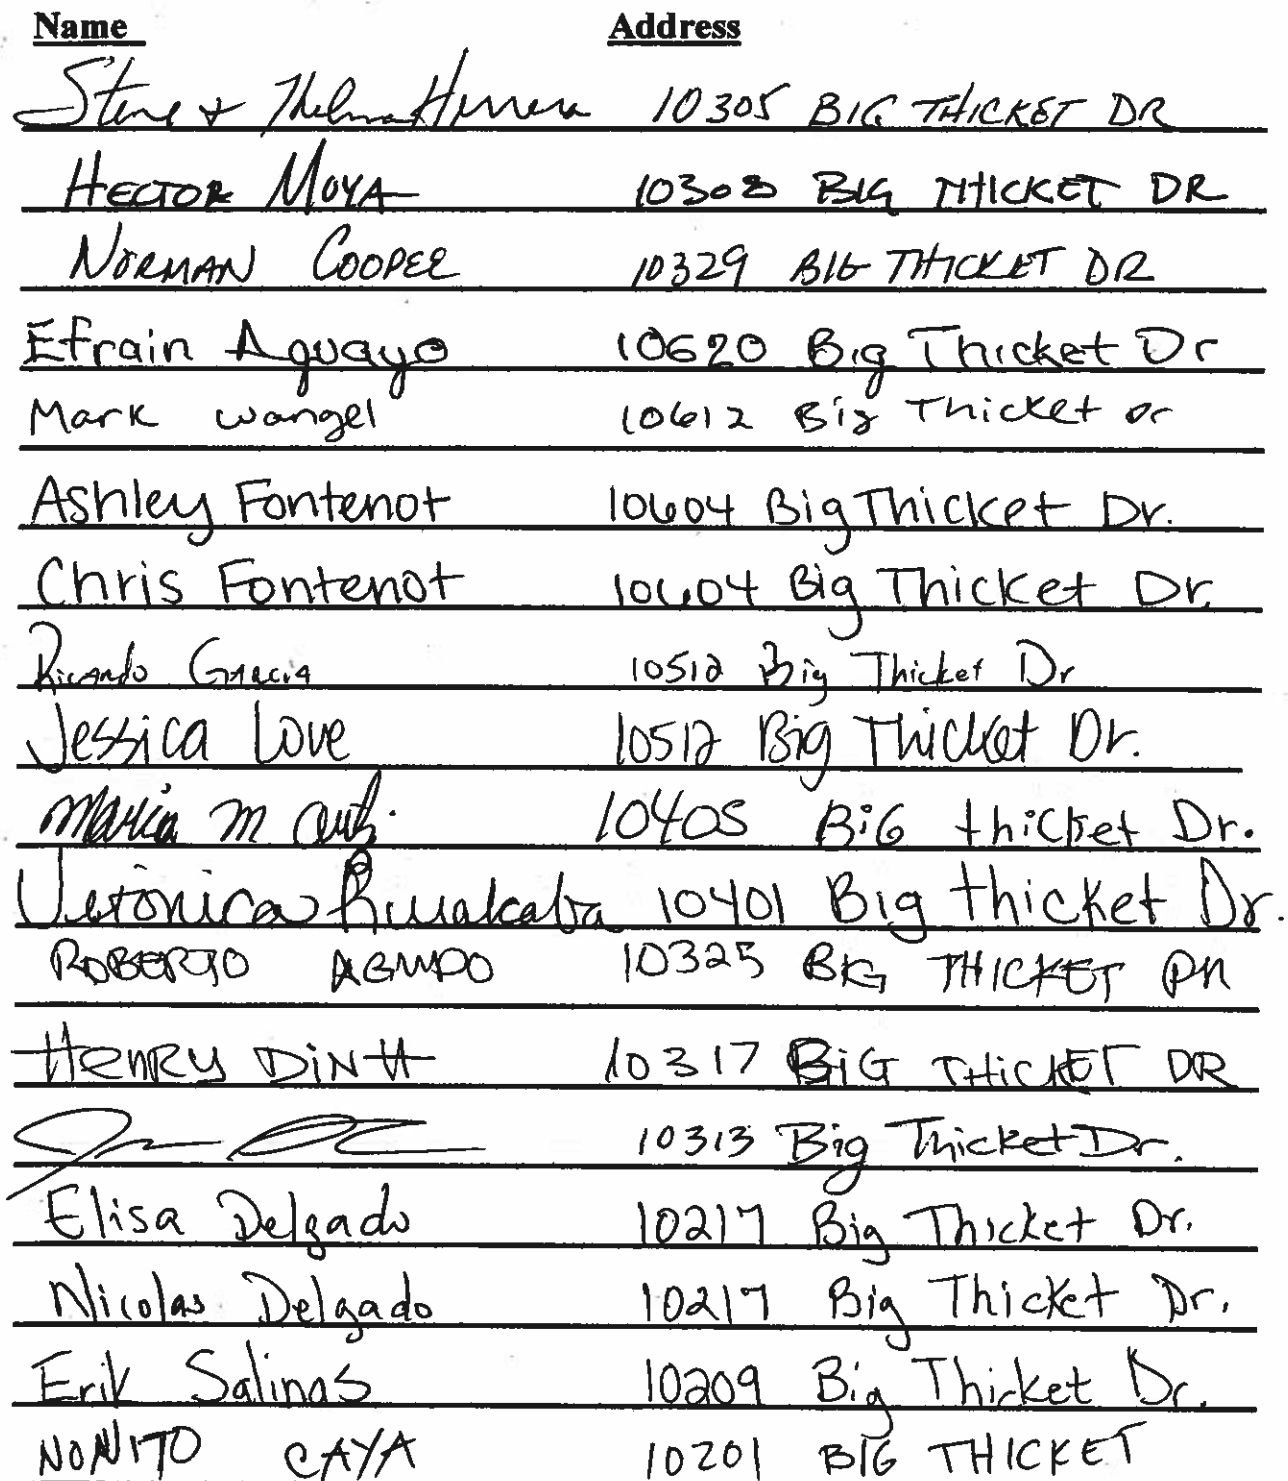 Name Address
Steve & Thelma Herrera 10305 BIG THICKET DR
HECTOR MOYA 10308 BIG THICKET DR
NORMAN COOPER 10329 BIG THICKET DR
Efrain Aguayo 10620 Big Thicket Dr
Mark Wangel 10612 Big Thicket Dr
Ashley Fontenot 10604 Big Thicket Dr.
Chris Fontenot 10604 Big Thicket Dr.
Ricardo Garcia 10512 Big Thicket Dr
Jessica Love 10512 Big Thicket Dr.
Maria M 10405 BiG thicket Dr.
Veronica 10401 Big thicket Dr.
ROBERTO 10325 BIG THICKET DR
HENRY DINH 10317 BiG THiCKET DR
10313 Big Thicket Dr.
Elisa Delgado 10217 Big Thicket Dr.
Nicolas Delgado 10217 Big Thicket Dr.
Erik Salinas 10209 Big Thicket Dr.
NONITO CAYA 10201 BIG THICKET